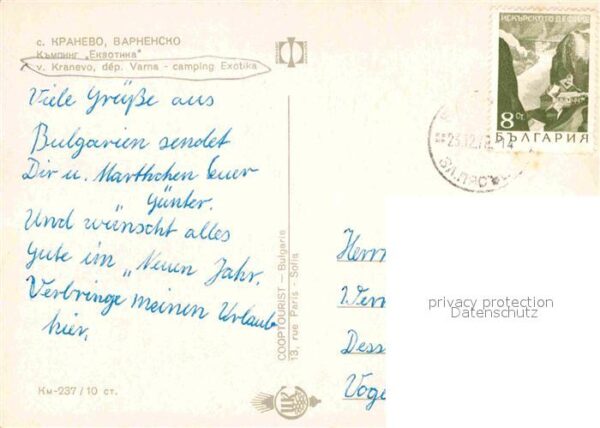 с. КРАНЕВО, ВАРНЕНСКО
Къмпинг „Екзотика"
v. Kranevo, dép. Varna - camping Exotika
Viele Grüße aus
Bulgarien sendet
Dir u. Marthchen Euer
Günter.
Und wünscht alles
Gute im „Neuen Jahr.
Verbringe meinen Urlaub
hier.
Км-237/10 ст.
COOPTOURIST — Bulgarie
13, rue Paris - Sofia
ИСКЪРСКОТО ДЕФИЛЕ
8 Ст.
БЪЛГАРИЯ
23.12.7
14
Herrn
Wern
Dess
Voge
privacy protection
Datenschutz